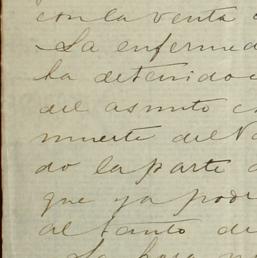 con la venta
La enfermed
ha detenido
del asunto c
muerte del V
do la parte
que ya pode
al tanto de